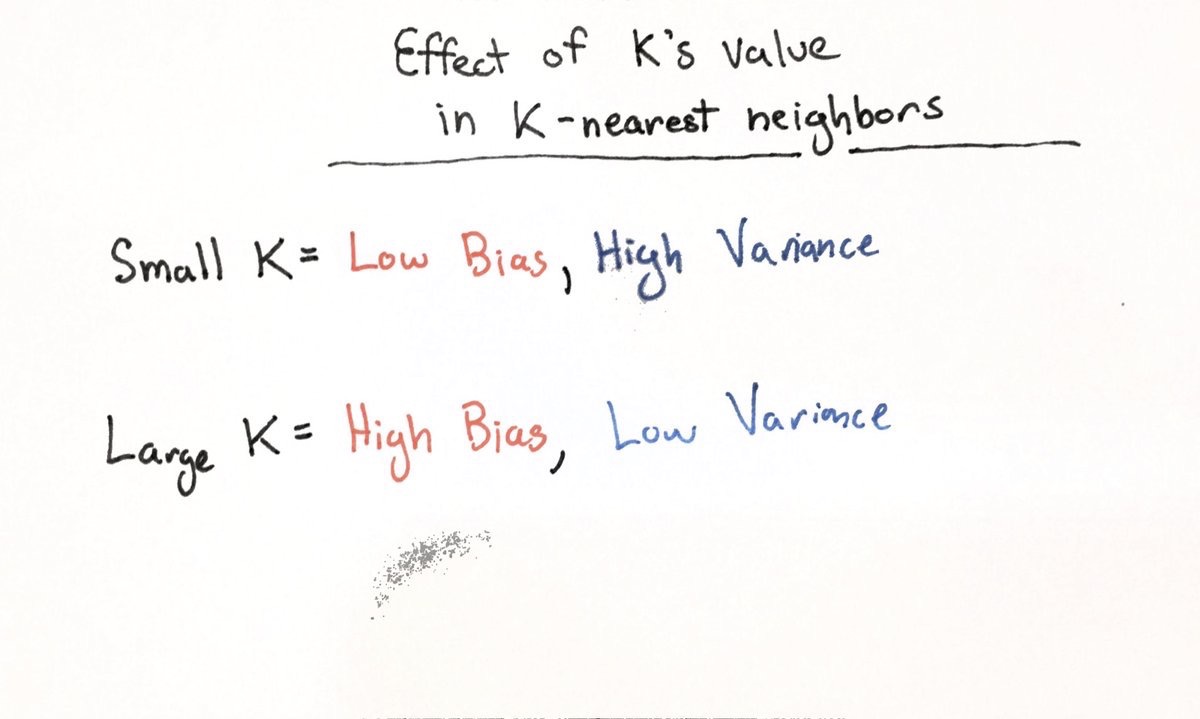 Effect of K's value
in K-nearest neighbors
Small K = Low Bias, High Variance
Large K = High Bias, Low Variance